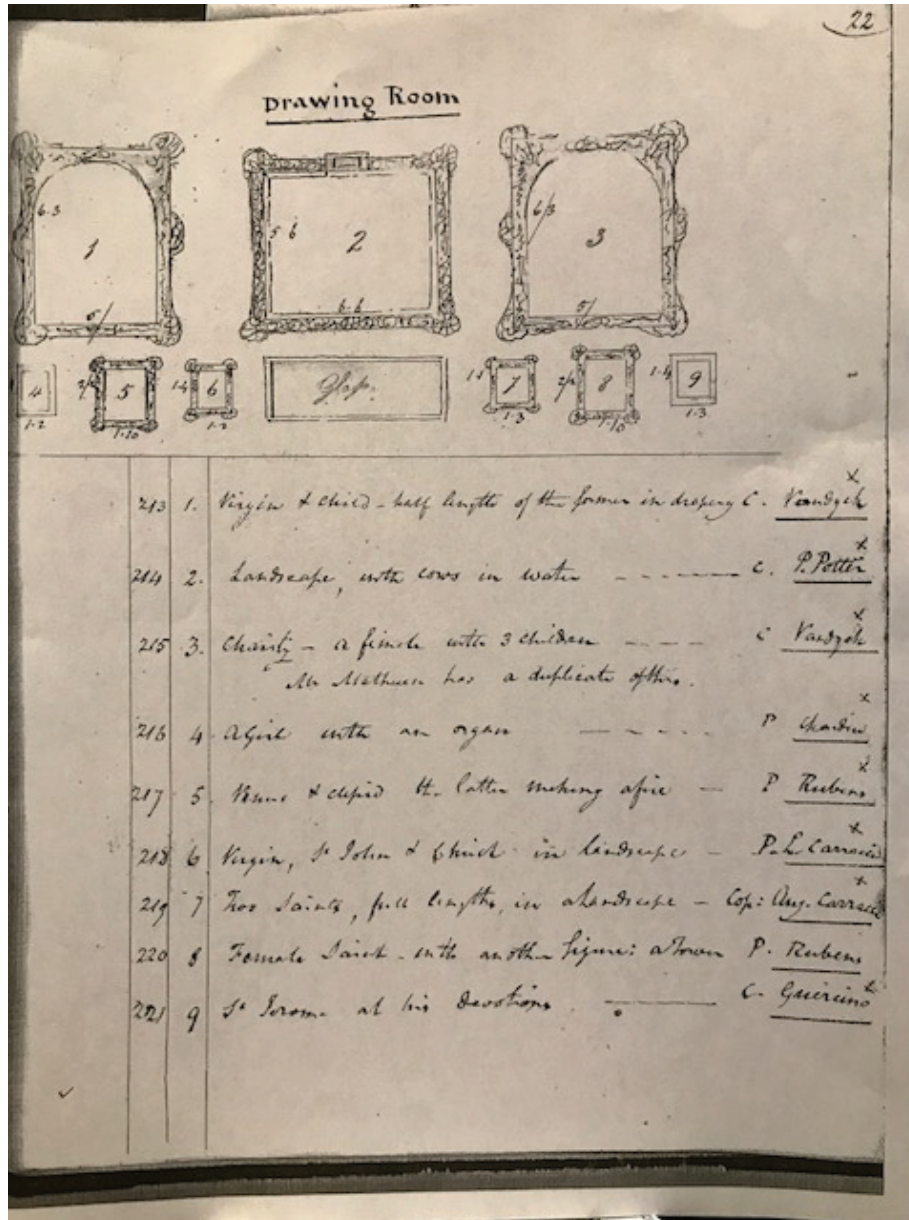 22
Drawing Room
6.3 5 6 6/3
1 2 3
5/ 6-6 5/
4 5 6 Glass. 7 8 9
1-2 1-10 1-2 1-3 1-10 1-3
213 1. Virgin & Child - half length of the former in drapery C. Vandyck
214 2. Landscape, with cows in water C. P. Potter
215 3. Charity - a female with 3 children C Vandyck
Mr Methuen has a duplicate of this.
216 4 A Girl with an organ P Chardin
217 5. Venus & cupid the latter making a fire P Rubens
218 6 Virgin, St John & Christ in landscape P. L. Carracci
219 7 Two Saints, full lengths, in a landscape - Cop: Aug. Carracci
220 8 Female Saint - with another figure: a Tower P. Rubens
221 9 St Jerome at his Devotions C. Guercino